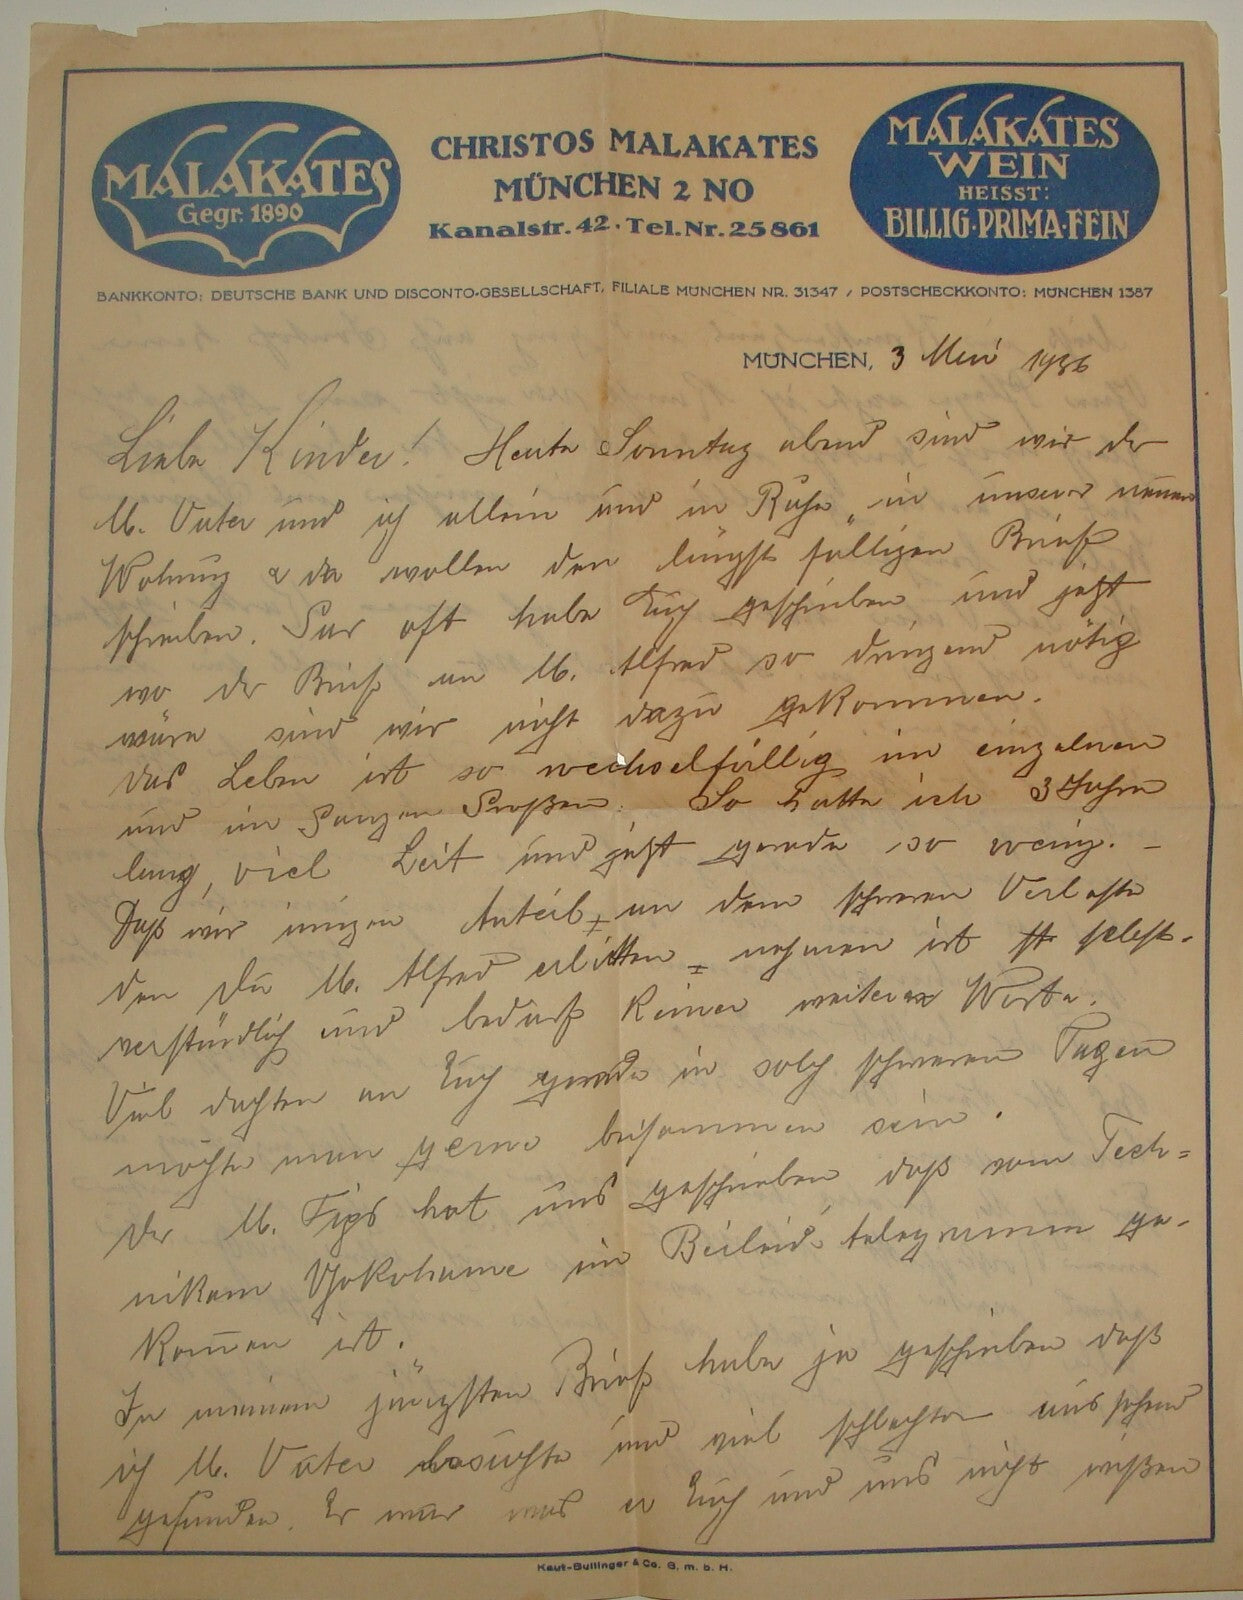 MALAKATES
Gegr. 1890
CHRISTOS MALAKATES
MÜNCHEN 2 NO
Kanalstr. 42. Tel. Nr. 25861
MALAKATES
WEIN
HEISST:
BILLIG·PRIMA·FEIN
BANKKONTO: DEUTSCHE BANK UND DISCONTO-GESELLSCHAFT, FILIALE MÜNCHEN NR. 31347 / POSTSCHECKKONTO: MÜNCHEN 1387
MÜNCHEN, 3 Mai 1936
Liebe Kinder! Heute Sonntag abend sind wir der
lb. Vater und ich allein und in Ruhe in unserer neuen
Wohnung & da wollen den längst fälligen Brief
schreiben. Gar oft habe Euch geschrieben und jetzt
wo der Brief an lb. Alfred so dringend nötig
wäre sind wir nicht dazu gekommen.
Das Leben ist so wechselfällig im einzelnen
und im Ganzen Großen. So hatte ich 3 Jahre
lang, viel Zeit und jetzt gerade so wenig. –
Daß wir innigen Anteil an dem schweren Verluste
den Du lb. Alfred erlitten nehmen ist selbst-
verständlich und bedarf keiner weiteren Worte.
Viel dachten an Euch gerade in solch schweren Tagen
möchte man gerne beisammen sein.
Der lb. Fips hat uns geschrieben daß vom Tech=
nikem Yokohama ein Beileidstelegramm ge-
kom̄en ist.
In meinem jüngsten Brief habe ja geschrieben daß
ich lb. Vater besuchte und viel schlechter aussehend
gefunden. Er war was er Euch und uns nicht wißen
Kaut-Bullinger & Co. G. m. b. H.